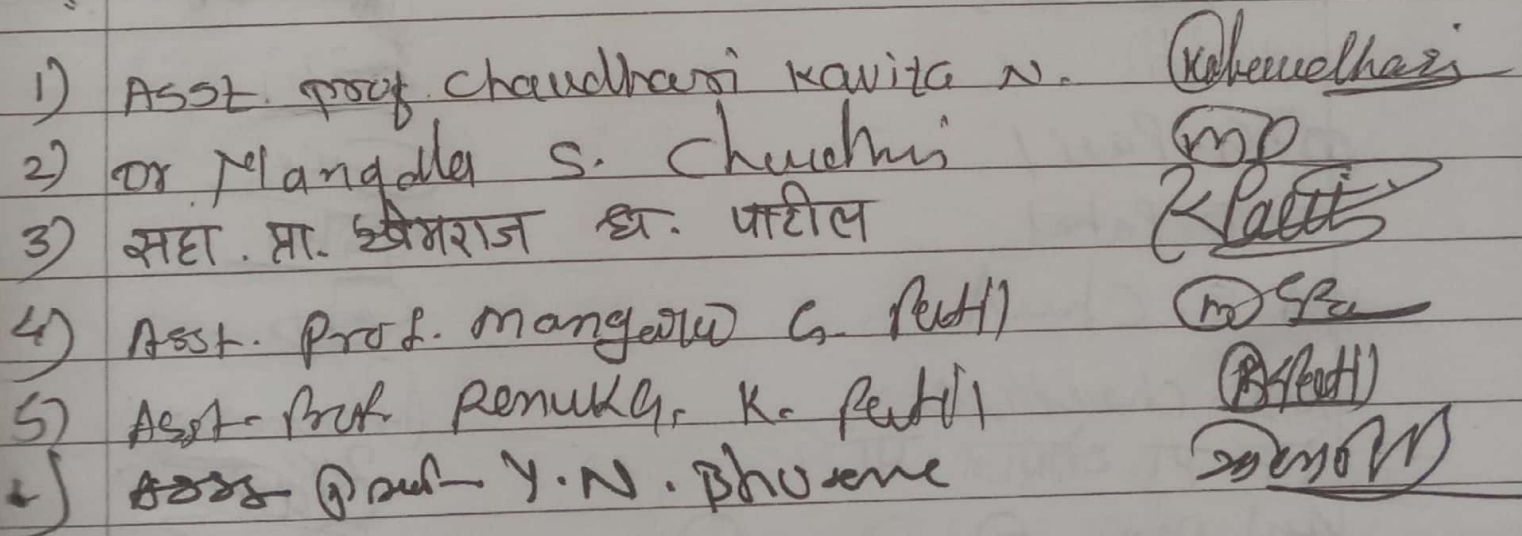 1) Asst. prof. Chaudhari Kavita N. Kchaudhari
2) Dr Mangala S. Chaudhari
3) सहा. प्रा. खेमराज ध. पाटील KPatil
4) Asst. Prof. Mangala G. Patil
5) Asst. Prof. Renuka. K. Patil RKPatil
Asso Prof Y.N. Bhosane